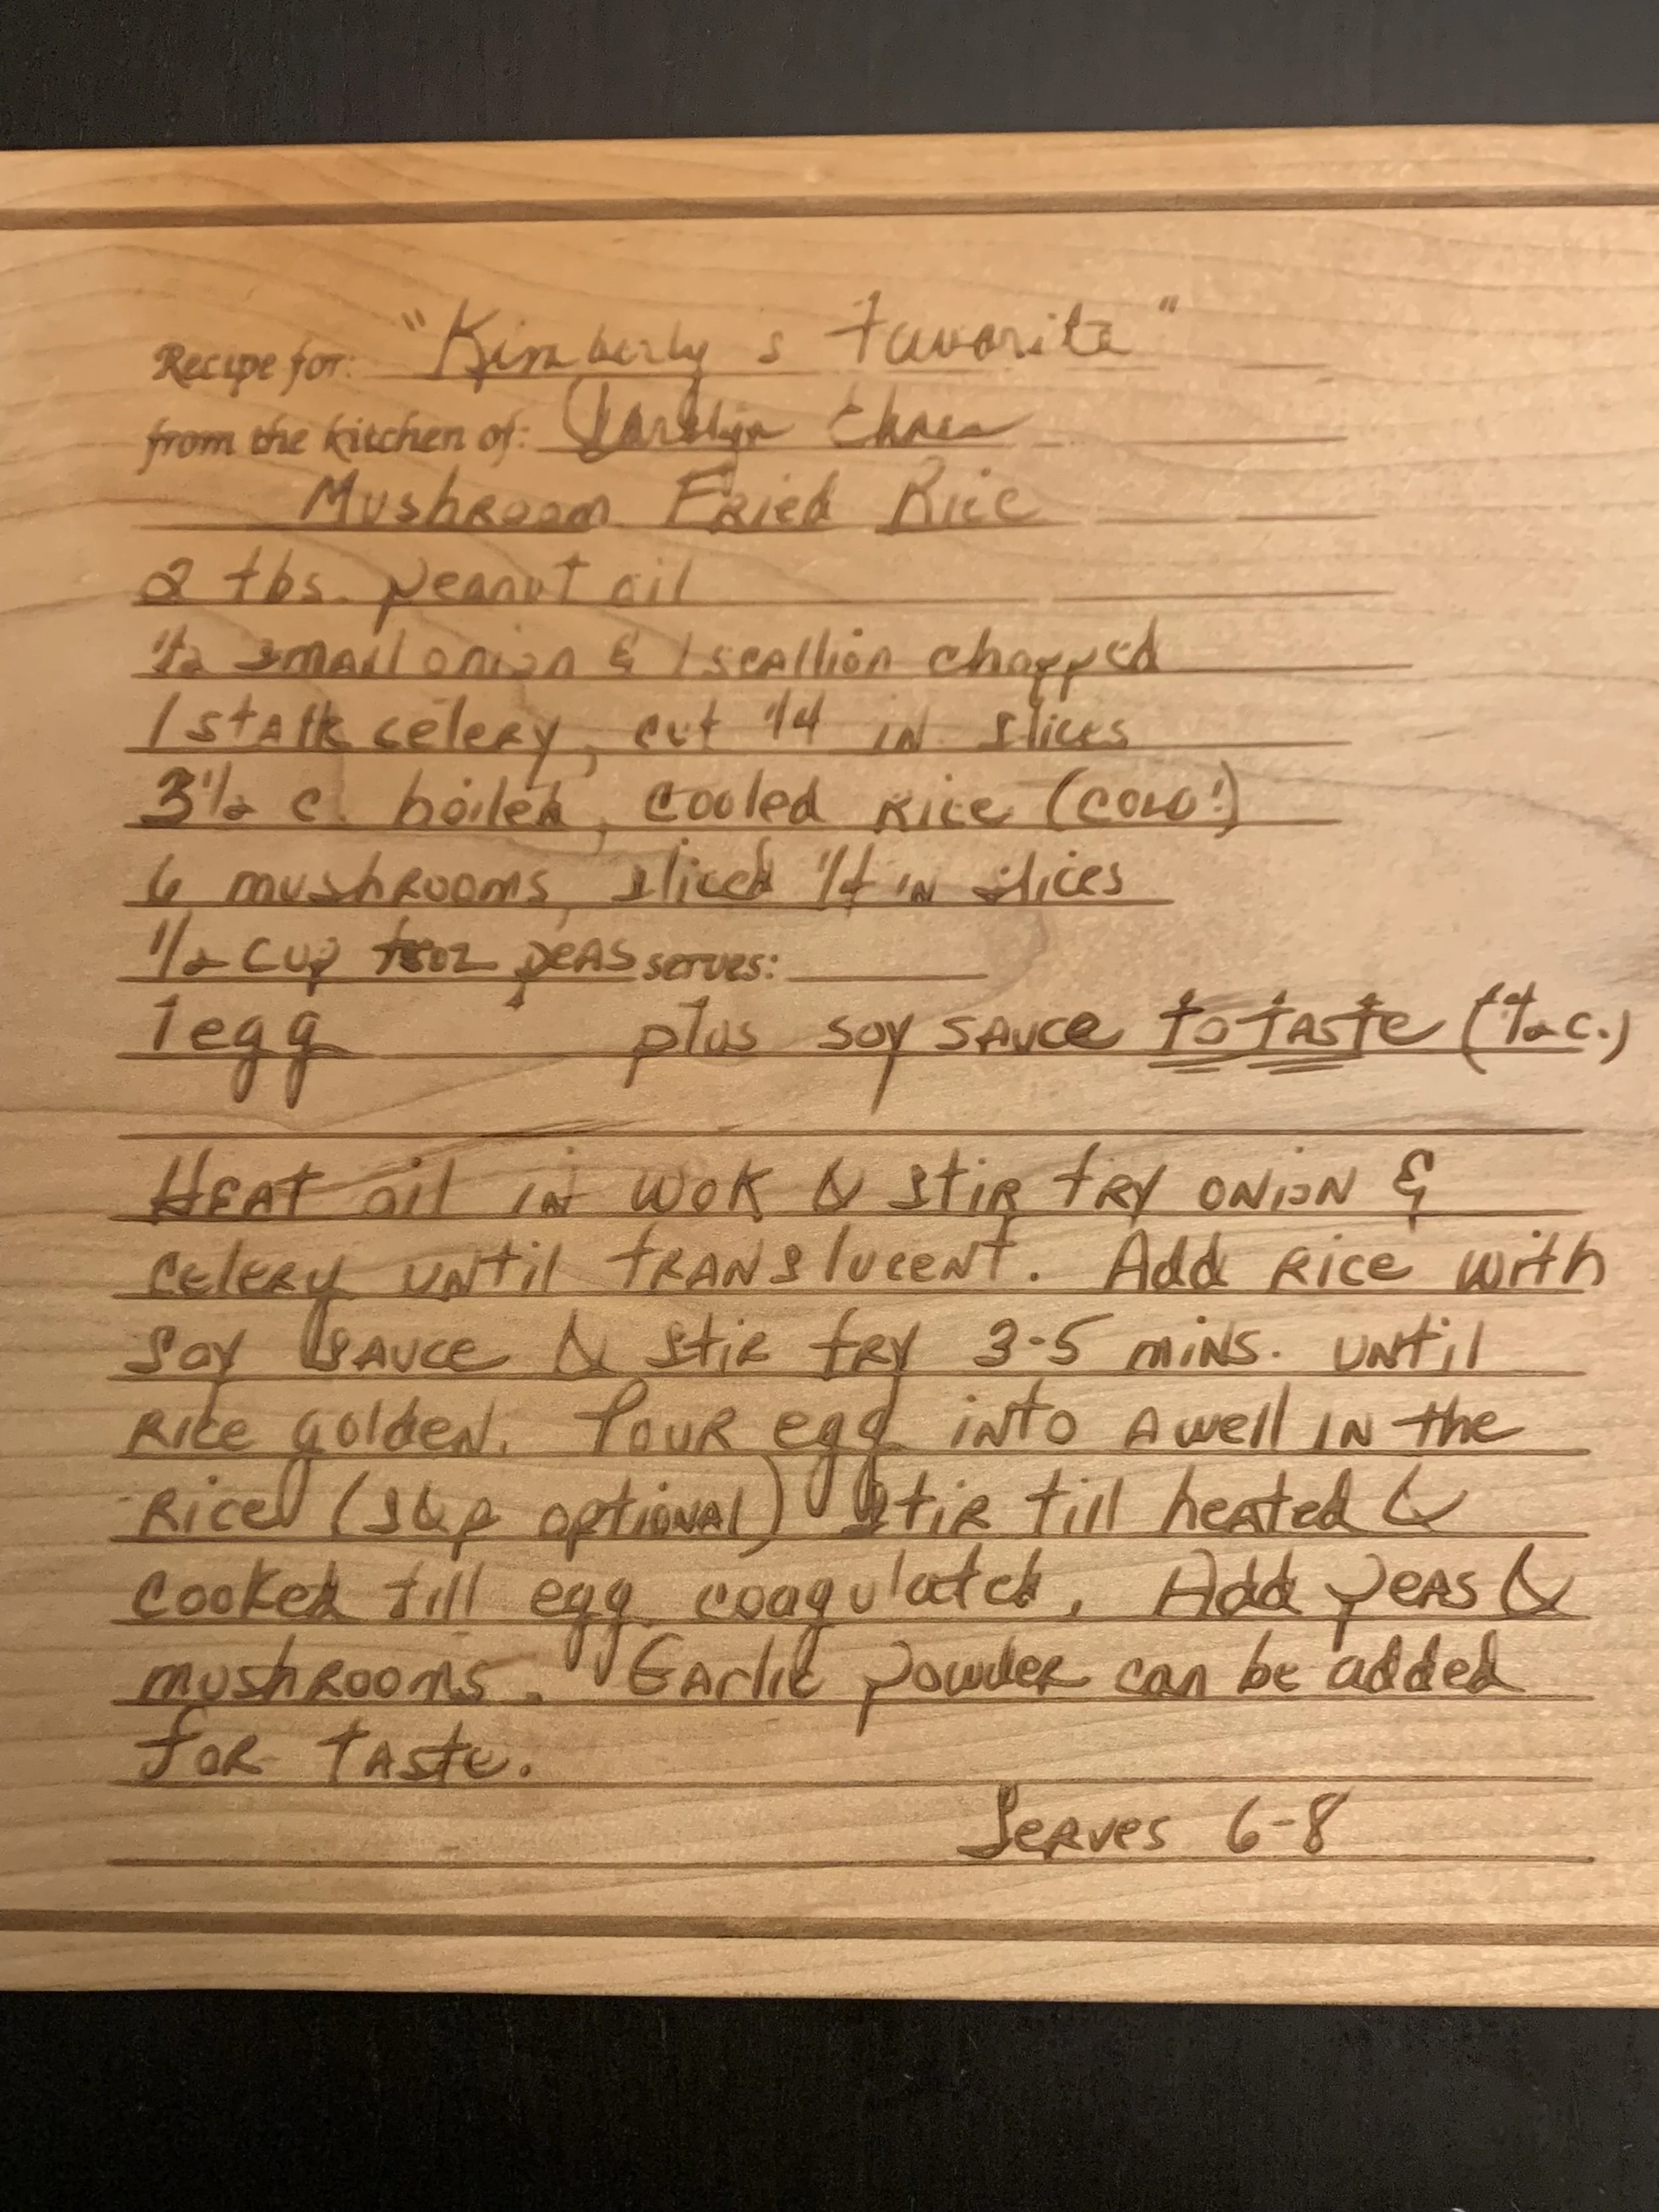 Recipe for: "Kimberly s Favorite"
from the kitchen of:
Mushroom Fried Rice
2 tbs. peanut oil
1/2 small onion & 1 scallion chopped
1 stalk celery, cut 1/4 in slices
3 1/2 c. boiled, cooled rice (cold!)
6 mushrooms, sliced 1/4 in slices
1/2 cup froz peas serves:
1 egg plus soy sauce to taste (1/2 c.)
Heat oil in wok & stir fry onion &
celery until translucent. Add rice with
soy sauce & stir fry 3-5 mins. until
rice golden. Pour egg into a well in the
rice (s&p optional) stir till heated &
cooked till egg coagulated. Add peas &
mushrooms. Garlic powder can be added
for taste.
Serves 6-8